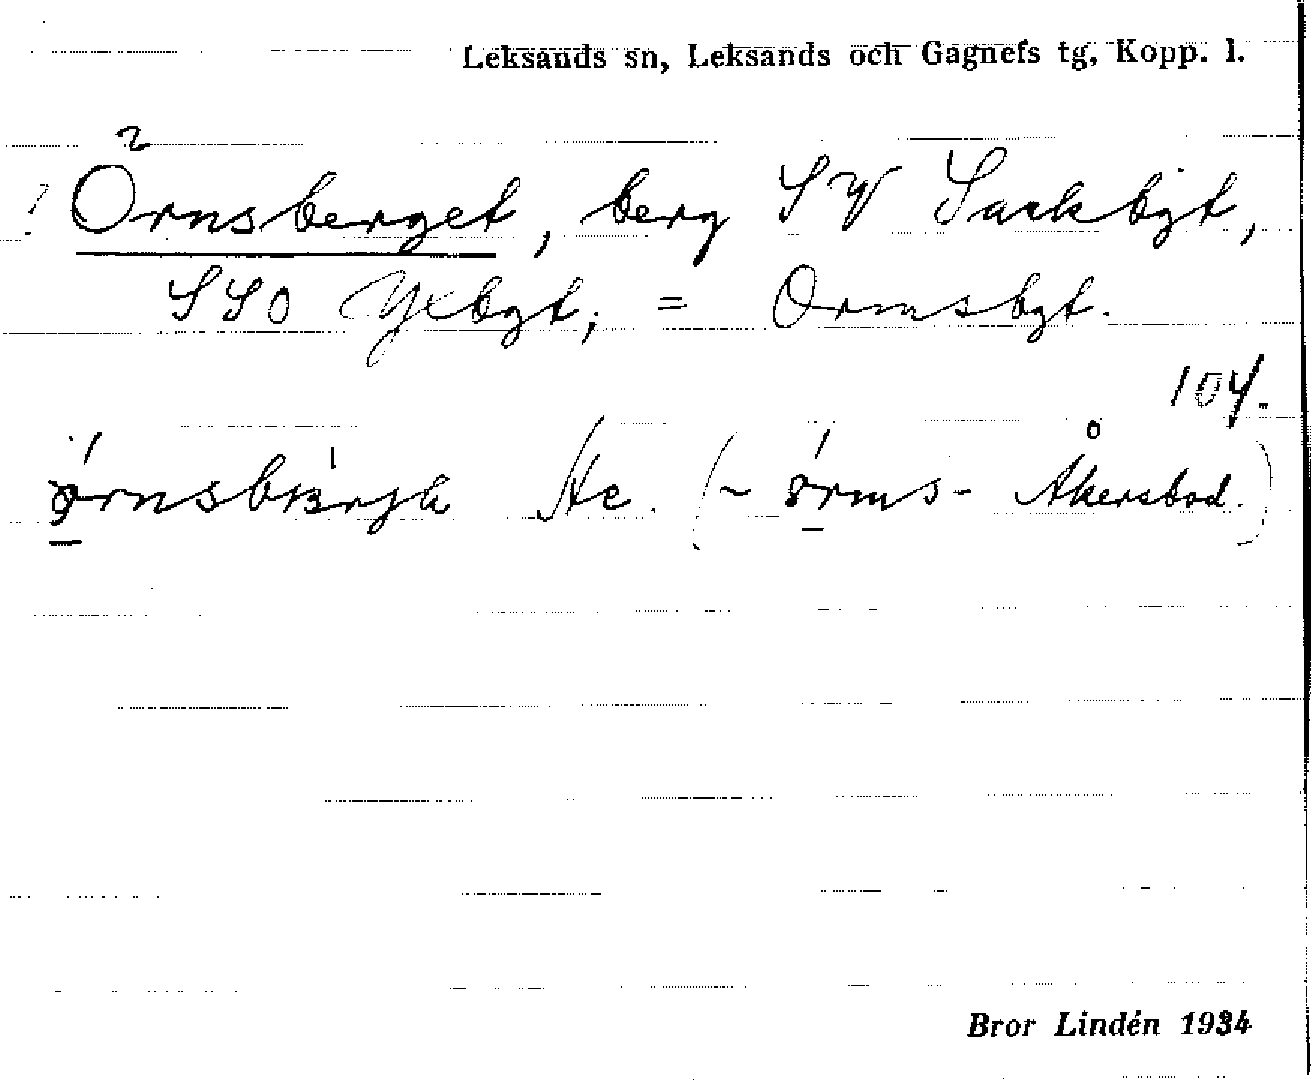 Leksands sn, Leksands och Gagnefs tg, Kopp. l.
? Örnsberget, berg SV Sackbgt,
SSO Yxbgt; = Ormsbgt.
104.
Åkersbod.)
Bror Lindén 1934